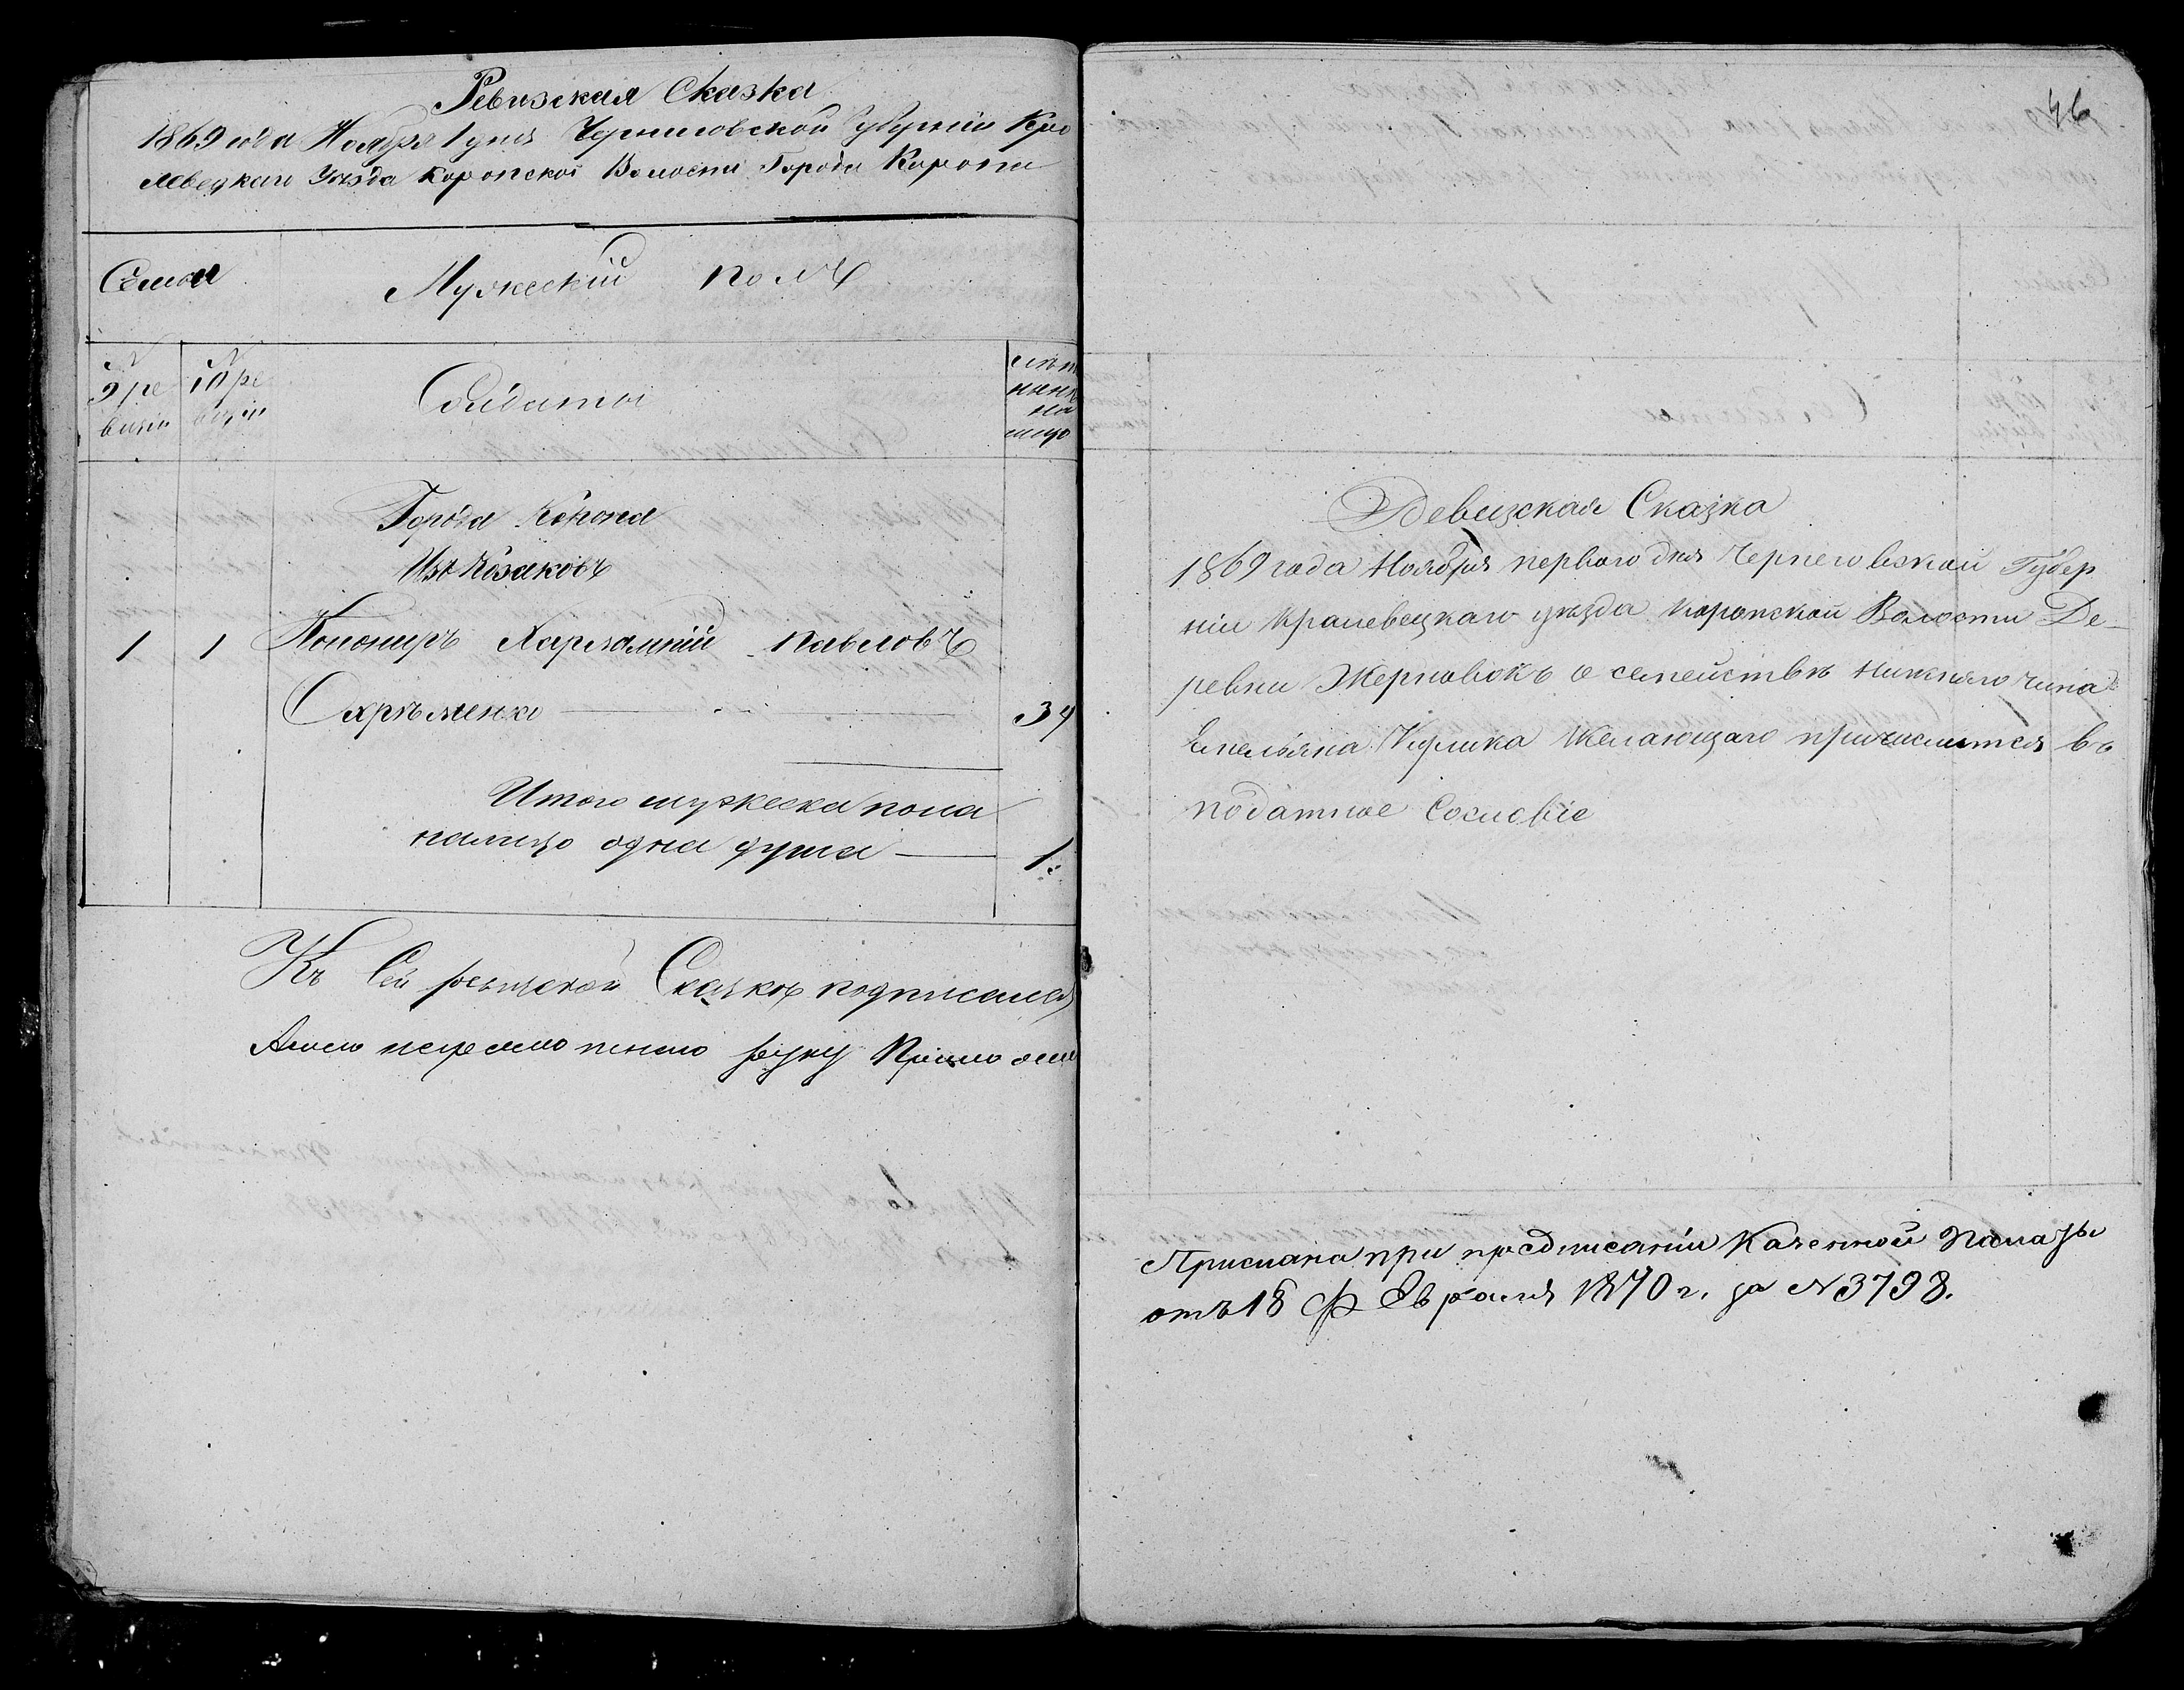 Ревизская Сказка
1869 года Ноября 1 дня Черниговской Губернiи Кро
левецкаго Уѣзда Коропской Волости Города Коропа
Семьи
Мужескiй полъ
N
9 ре
визiи
N
10 ре
визiи
Солдаты
лѣтъ
нынѣ
на
лицо
Города Коропа
Изъ Козаковъ
1 1 Канониръ Харлампiй Павловъ
Охрѣменко 34
Итого мужеска пола
налицо одна душа 1
Къ Сей ревизской Сказке подписался
руку Приложилъ
46
Ревизская Сказка
1869 года Ноября перваго дня Черниговской Губер
нiи Кралевецкаго уѣзда Коропской Волости Де-
ревни Жерновокъ о семействѣ Нижняго чина
Емельяна Кулика Желающаго причислится въ
податное Сословiе
Прислана при предписанiи Казенной Палаты
отъ 18 Февраля 1870 г. за N 3798.